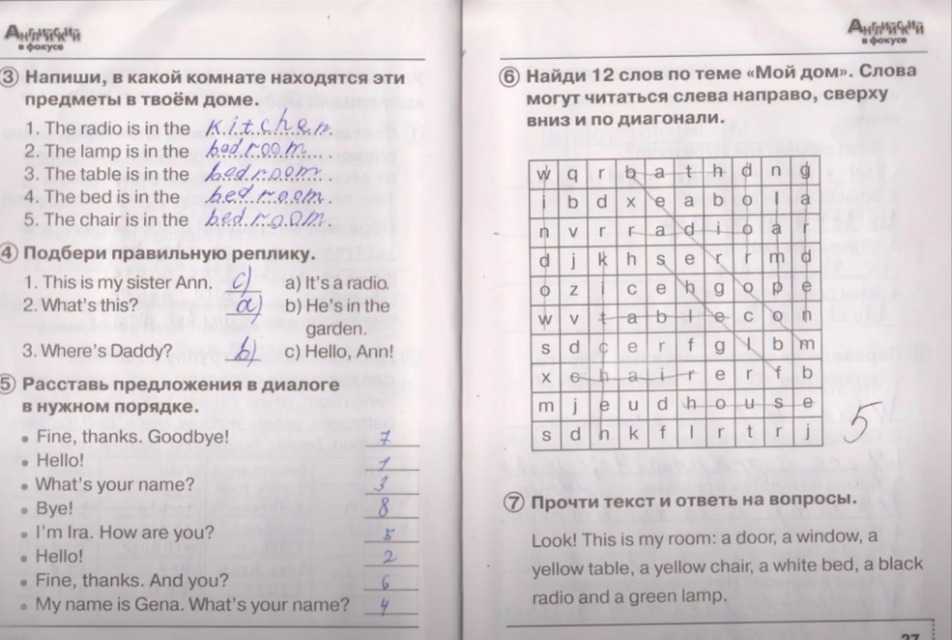 Английский
в фокусе
③ Напиши, в какой комнате находятся эти
предметы в твоём доме.
1. The radio is in the kitchen.
2. The lamp is in the bedroom.
3. The table is in the bedroom.
4. The bed is in the bedroom.
5. The chair is in the bedroom.
④ Подбери правильную реплику.
1. This is my sister Ann. c) a) It's a radio.
2. What's this? a) b) He's in the
garden.
3. Where's Daddy? b) c) Hello, Ann!
⑤ Расставь предложения в диалоге
в нужном порядке.
• Fine, thanks. Goodbye! 7
• Hello! 1
• What's your name? 3
• Bye! 8
• I'm Ira. How are you? 5
• Hello! 2
• Fine, thanks. And you? 6
• My name is Gena. What's your name? 4
Английский
в фокусе
⑥ Найди 12 слов по теме «Мой дом». Слова
могут читаться слева направо, сверху
вниз и по диагонали.
w q r b a t h d n g
i b d x e a b o l a
n v r r a d i o a r
d j k h s e r r m d
o z i c e h g o p e
w v t a b l e c o n
s d c e r f g l b m
x c h a i r e r f b
m j e u d h o u s e
s d n k f l r t r j
5
⑦ Прочти текст и ответь на вопросы.
Look! This is my room: a door, a window, a
yellow table, a yellow chair, a white bed, a black
radio and a green lamp.